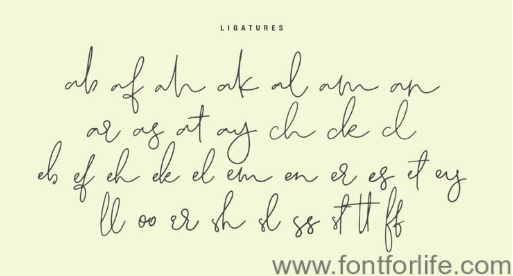 LIGATURES
ab af ah ak al am an
ar as at ay ch ck cl
eb ef eh ek el em en er es et ey
ll oo rr sh sl ss st tt ff
www.fontforlife.com